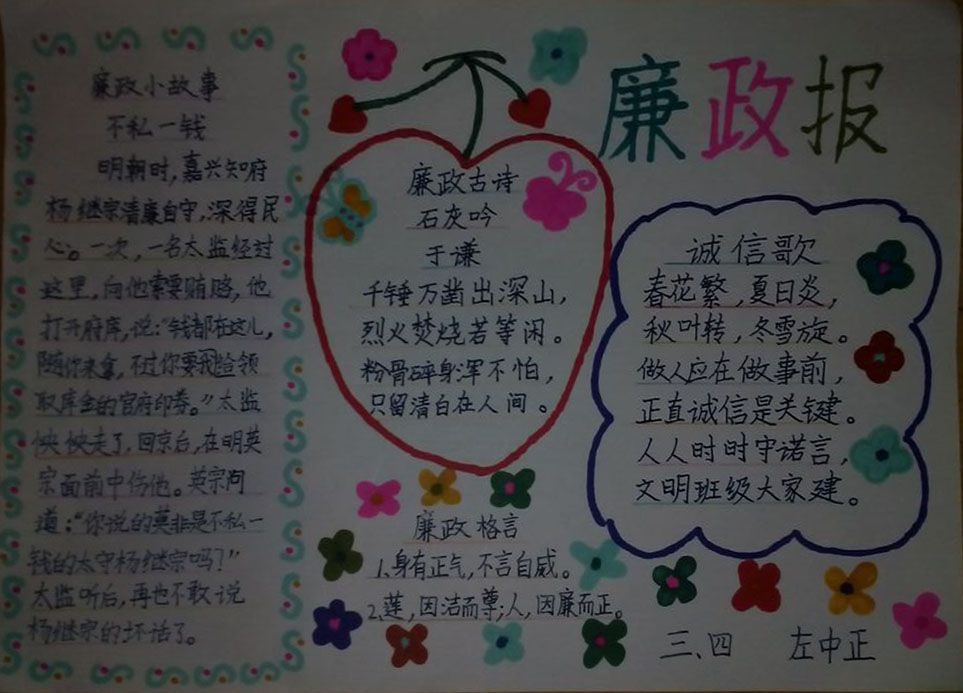 廉政报
廉政小故事
不私一钱
明朝时,嘉兴知府
杨继宗清廉自守,深得民
心。一次,一名太监经过
这里,向他索要贿赂,他
打开府库,说:“钱都在这儿,
随你来拿,不过你要我给领
取库金的官府印券。”太监
怏怏走了,回京台,在明英
宗面前中伤他。英宗问
道:“你说的莫非是不私一
钱的太守杨继宗吗?”
太监听后,再也不敢说
杨继宗的坏话了。
廉政古诗
石灰吟
于谦
千锤万凿出深山,
烈火焚烧若等闲。
粉骨碎身浑不怕,
只留清白在人间。
廉政格言
1、身有正气,不言自威。
2、莲,因洁而尊;人,因廉而正。
诚信歌
春花繁,夏日炎,
秋叶转,冬雪旋。
做人应在做事前,
正直诚信是关键。
人人时时守诺言,
文明班级大家建。
三、四 左中正